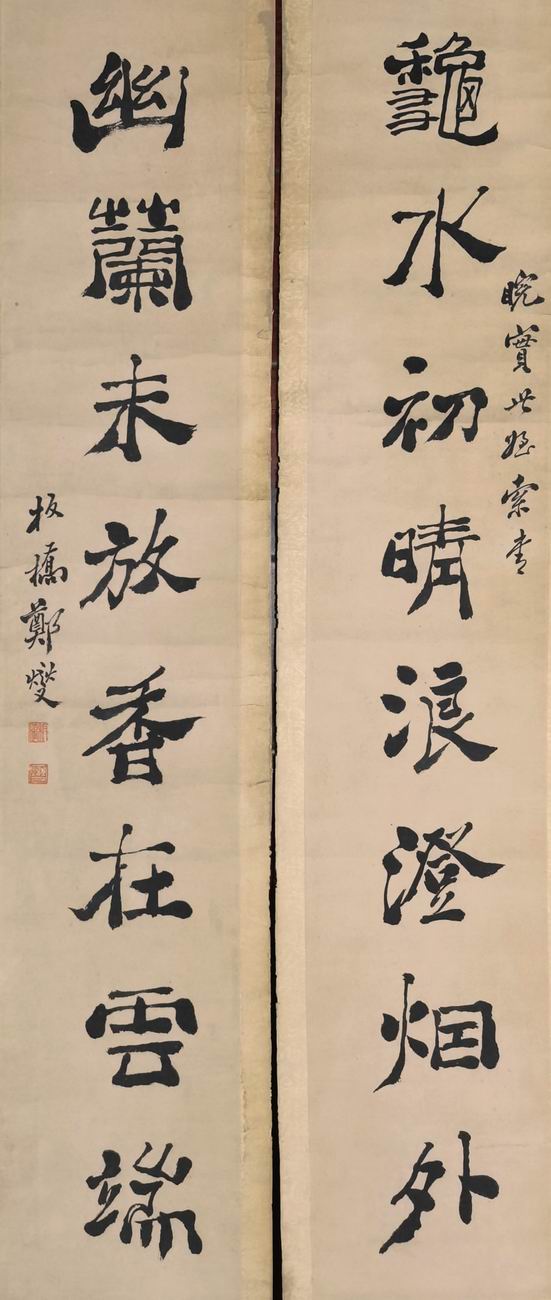 實世索書
龝水初晴浪澄烟外
幽蘭未放香在雲端
板橋鄭燮